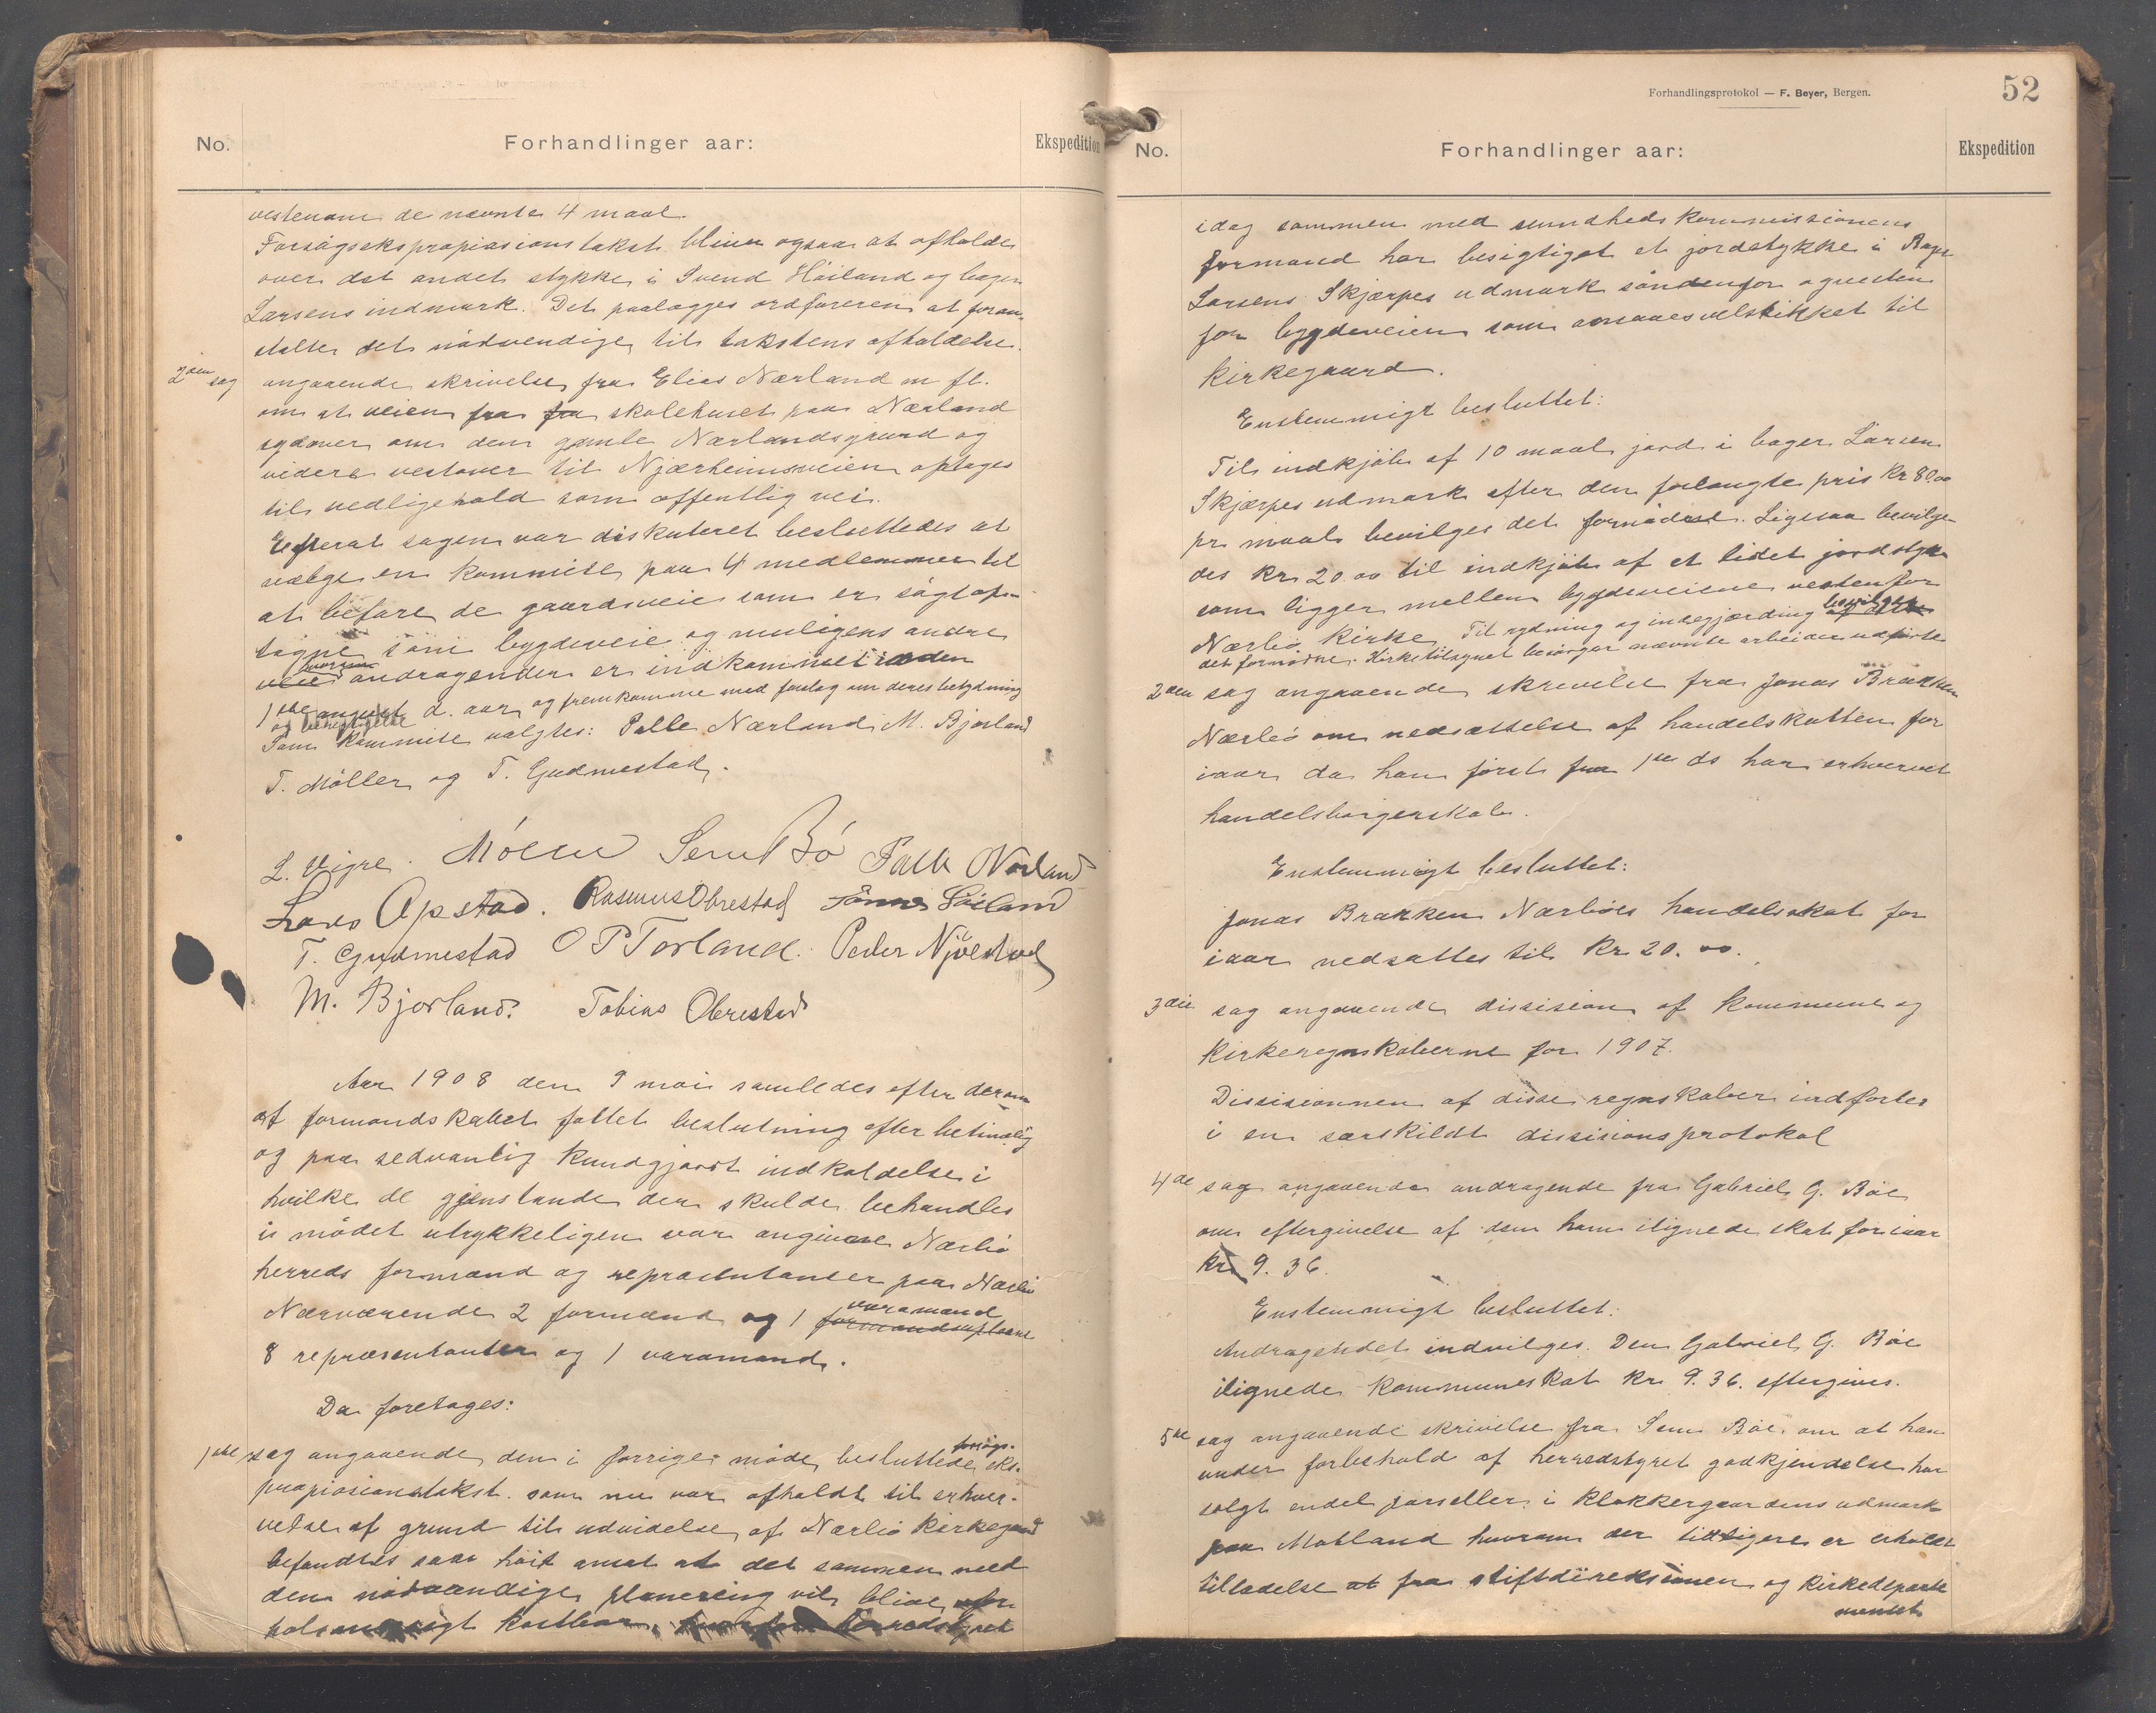 No.
Forhandlinger aar:
Ekspedition
vestenom de nævnte 4 maal.
Forsøgsekspropiasionstakst bliver ogsaa at afholde
over det andet stykke i Svend Höiland og bager
Larsens indmark. Det paalægges ordföreren at foran-
stalte det nödvendige til takstens afholdelse.
2den sag angaaende skrivelse fra Elias Nærland m. fl.
om at veien fra fra skolehuset paa Nærland
sydover om den gamle Nærlandsgaard og
videre vestover til Njærheimsveien optages
til vedligehold som offentlig vei.
Efterat sagen var diskuteret besluttedes at
vælge en kommite paa 4 medlemmer til
at befare de gaardsveie som er sögt op-
tagne som bygdeveie og muligens andre
veie hvorom andragender er indkommet inden
1ste august d. aar og fremkomme med forslag om deres betydning
og beskaffenhed
Som kommite valgtes: Palle Nærland, M. Bjorland
T. Möller og T. Gudmestad.
L. Vigre. Möller Sem Bö Palle Nærland
Lars Opstad. Rasmus Obrestad Tönnes Höiland
T. Gudmestad O P Torland. Peder Njölstad
M. Bjorland. Tobias Obrestad
Aar 1908 den 9 mai samledes efter derom
af formandskabet fattet beslutning efter betimelig
og paa sedvanlig kundgjort indkaldelse i
hvilke de gjenstande der skulde behandles
i mödet utrykkeligen var angivne Nærbö
herreds formænd og repræsentanter paa Nærbö
Nærværende 2 formænd og 1 varamand
8 repræsentanter og 1 varamand.
Da foretages:
1ste sag angaaende den i forrige möde besluttede forsögs-eks-
propiasionstakst som nu var afholdt til erhver-
velse af grund til udvidelse af Nærbö kirkegaard
befandtes saa höit ansat at det sammen med
den nödvendige planering vil blive ufor-
holdsmæssigt kostbar, hvorfor herredstyret
Forhandlingsprotokol — F. Beyer, Bergen.
52
No.
Forhandlinger aar:
Ekspedition
idag sammen med sundhedskommissionens
formand har besigtiget et jordstykke i Bager
Larsens Skjærpes udmark söndenfor og vesten
for bygdeveien som ansaaes velskikket til
kirkegaard.
Enstemmigt besluttet:
Til indkjöb af 10 maal jord i bager Larsen
Skjærpes udmark efter den forlangte pris Kr 80.00
pr maal bevilges det fornödne. Ligesaa bevilge-
des Kr. 20.00 til indkjöb af et lidet jordstykke
som ligger mellem bygdeveiene vestenfor
Nærbö kirke. Til rydning og indgjærding bevilges
det fornödne. Kirketilsynet besörger nævnte arbeider udförte
2den sag angaaende skrivelse fra Jonas Brakken
Nærbö om nedsættelse af handelskatten for
iaar da han först fra 1ste ds har erhvervet
handelsborgerskab.
Enstemmigt besluttet:
Jonas Brakken Nærböes handelsskat for
iaar nedsattes til Kr 20.00.
3die sag angaaende dissision af kommune og
kirkeregnskaberne for 1907.
Dissisionen af disse regnskaber indförtes
i en særskildt dissisionsprotokol
4de sag angaaende andragende fra Gabriel G. Böe
om eftergivelse af den ham ilignede skat for iaar
Kr. 9.36.
Enstemmigt besluttet:
Andragendet indvilges. Den Gabriel G. Böe
ilignede kommuneskat Kr 9.36. eftergives.
5te sag angaaende skrivelse fra Sem Böe om at han
under forbehold af herredstyret godkjendelse har
solgt endel parseller i klokkergaardens udmark
paa Motland hvorom der tidligere er erholdt
tilladelse at fra stiftdireksionen og kirkedeparte
mentet